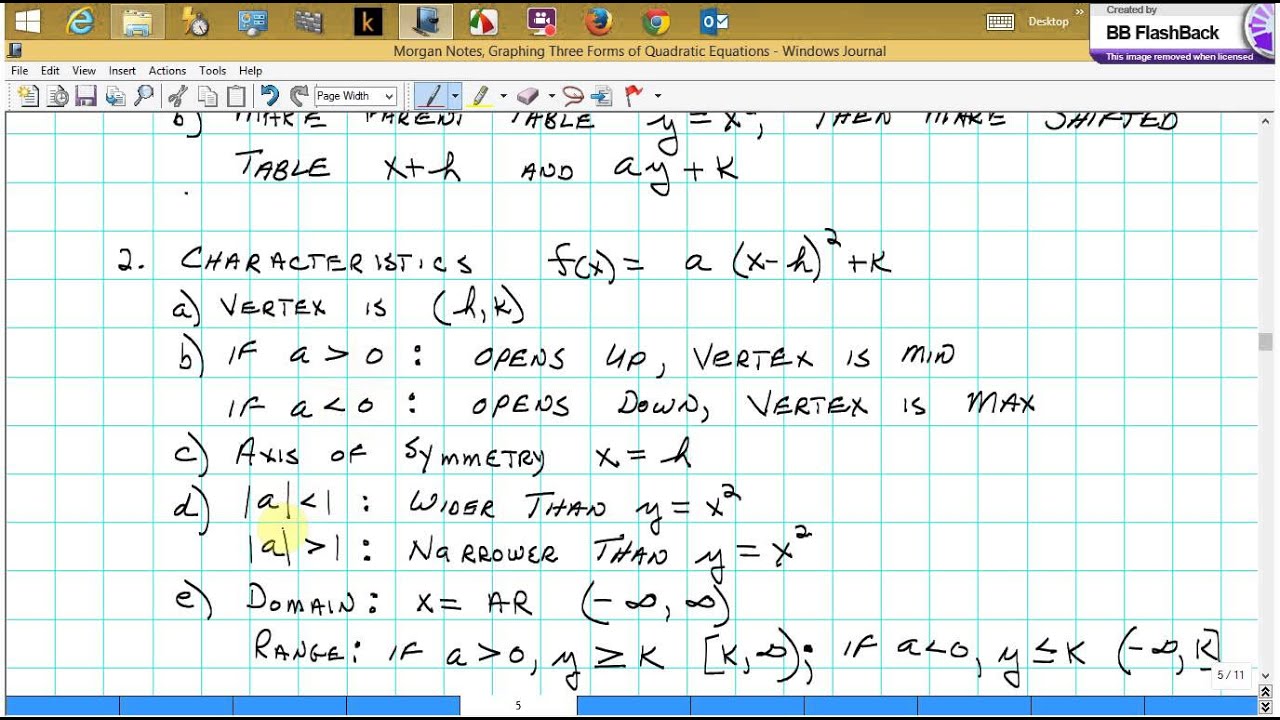 Created by
BB FlashBack
This image removed when licensed
Desktop
Morgan Notes, Graphing Three Forms of Quadratic Equations - Windows Journal
File Edit View Insert Actions Tools Help
Page Width
b) MAKE PARENT TABLE y = x², THEN MAKE SHIFTED
TABLE x+h AND ay + K
2. CHARACTERISTICS f(x) = a (x-h)² + K
a) VERTEX IS (h, K)
b) IF a > 0 : OPENS UP, VERTEX IS MIN
IF a < 0 : OPENS DOWN, VERTEX IS MAX
c) AXIS OF SYMMETRY x = h
d) |a| < 1 : WIDER THAN y = x²
|a| > 1 : NARROWER THAN y = x²
e) DOMAIN: x = AR (-∞, ∞)
RANGE: IF a > 0, y ≥ K [K, ∞); IF a < 0, y ≤ K (-∞, K]
5 / 11
5